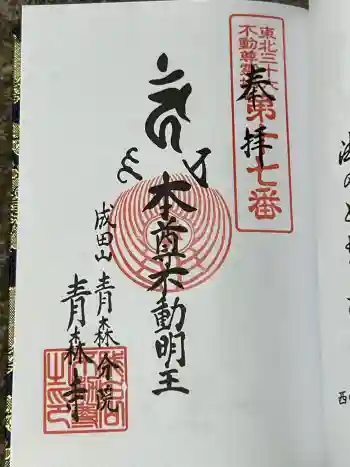 東北三十六
不動尊霊場
第十七番
奉拝
本尊不動明王
成田山
青森分院
青森寺